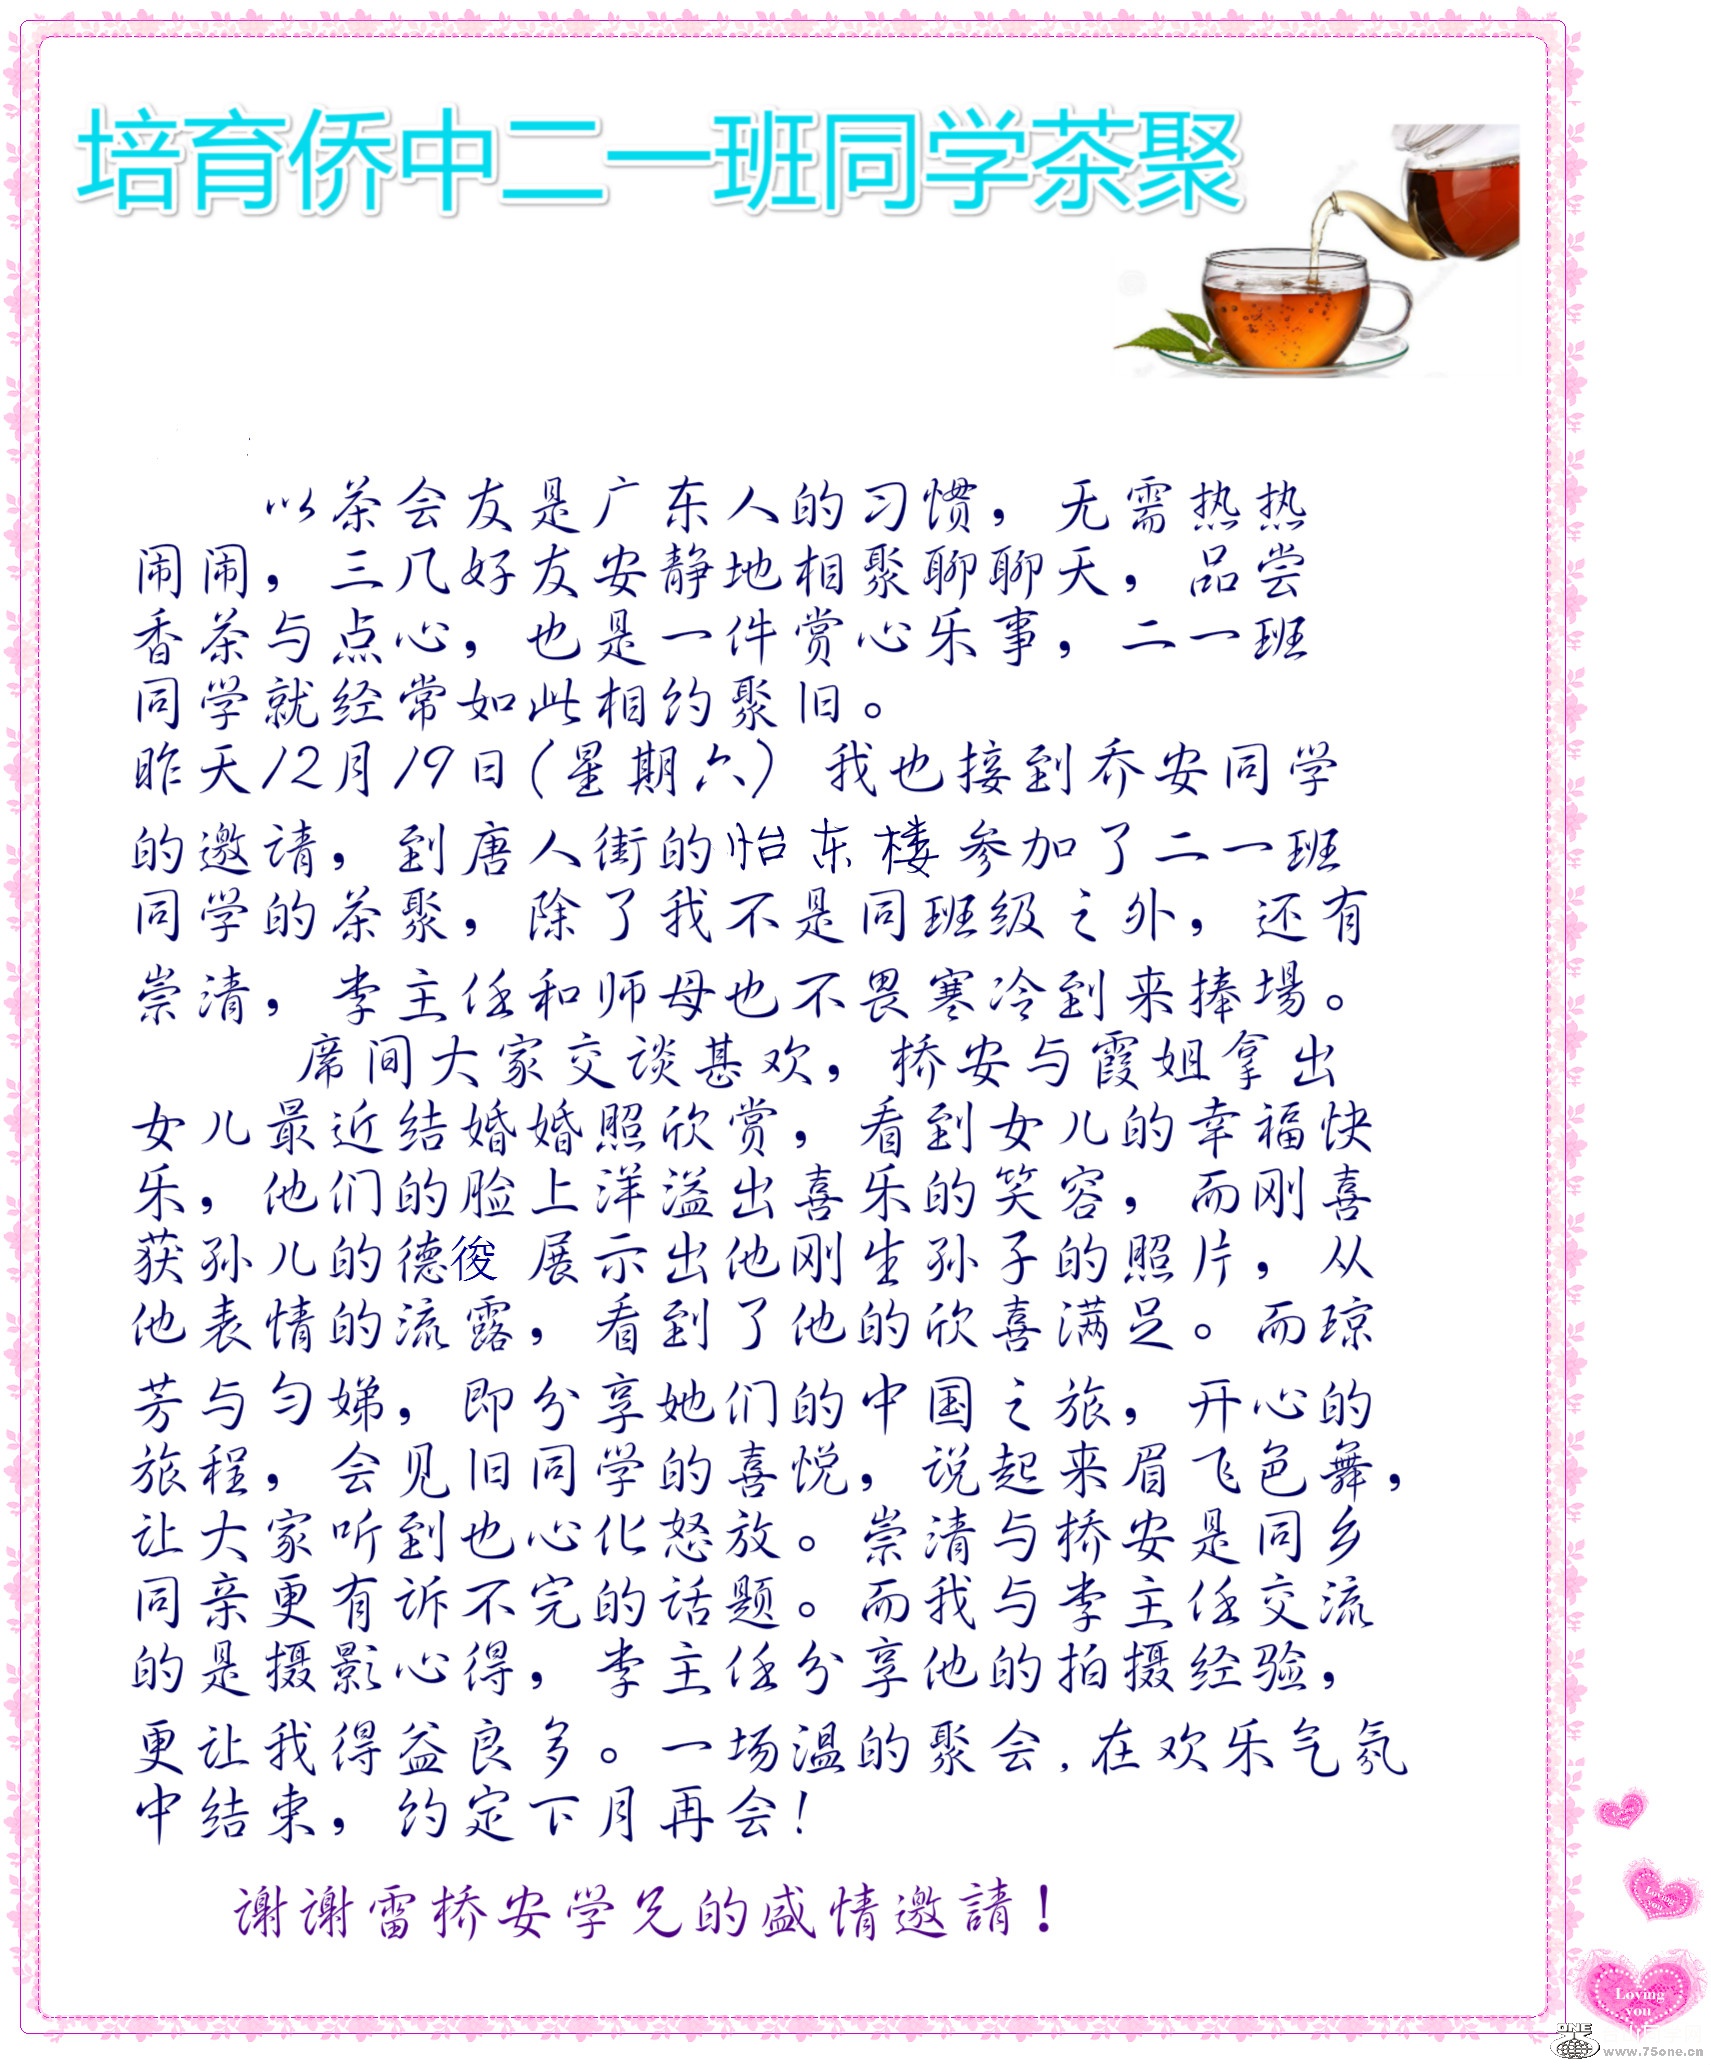 培育侨中二一班同学茶聚
以茶会友是广东人的习惯，无需热热
闹闹，三几好友安静地相聚聊聊天，品尝
香茶与点心，也是一件赏心乐事，二一班
同学就经常如此相约聚旧。
昨天12月19日(星期六) 我也接到乔安同学
的邀请，到唐人街的怡东楼参加了二一班
同学的茶聚，除了我不是同班级之外，还有
崇清，李主任和师母也不畏寒冷到来捧場。
席间大家交谈甚欢，桥安与霞姐拿出
女儿最近结婚婚照欣赏，看到女儿的幸福快
乐，他们的脸上洋溢出喜乐的笑容，而刚喜
获孙儿的德俊 展示出他刚生孙子的照片，从
他表情的流露，看到了他的欣喜满足。而琼
芳与匀娣，即分享她们的中国之旅，开心的
旅程，会见旧同学的喜悦，说起来眉飞色舞，
让大家听到也心化怒放。崇清与桥安是同乡
同亲更有诉不完的话题。而我与李主任交流
的是摄影心得，李主任分享他的拍摄经验，
更让我得益良多。一场温的聚会,在欢乐气氛
中结束，约定下月再会！
谢谢雷桥安学兄的盛情邀請！
Loving you
Loving you
ONE
www.75one.cn